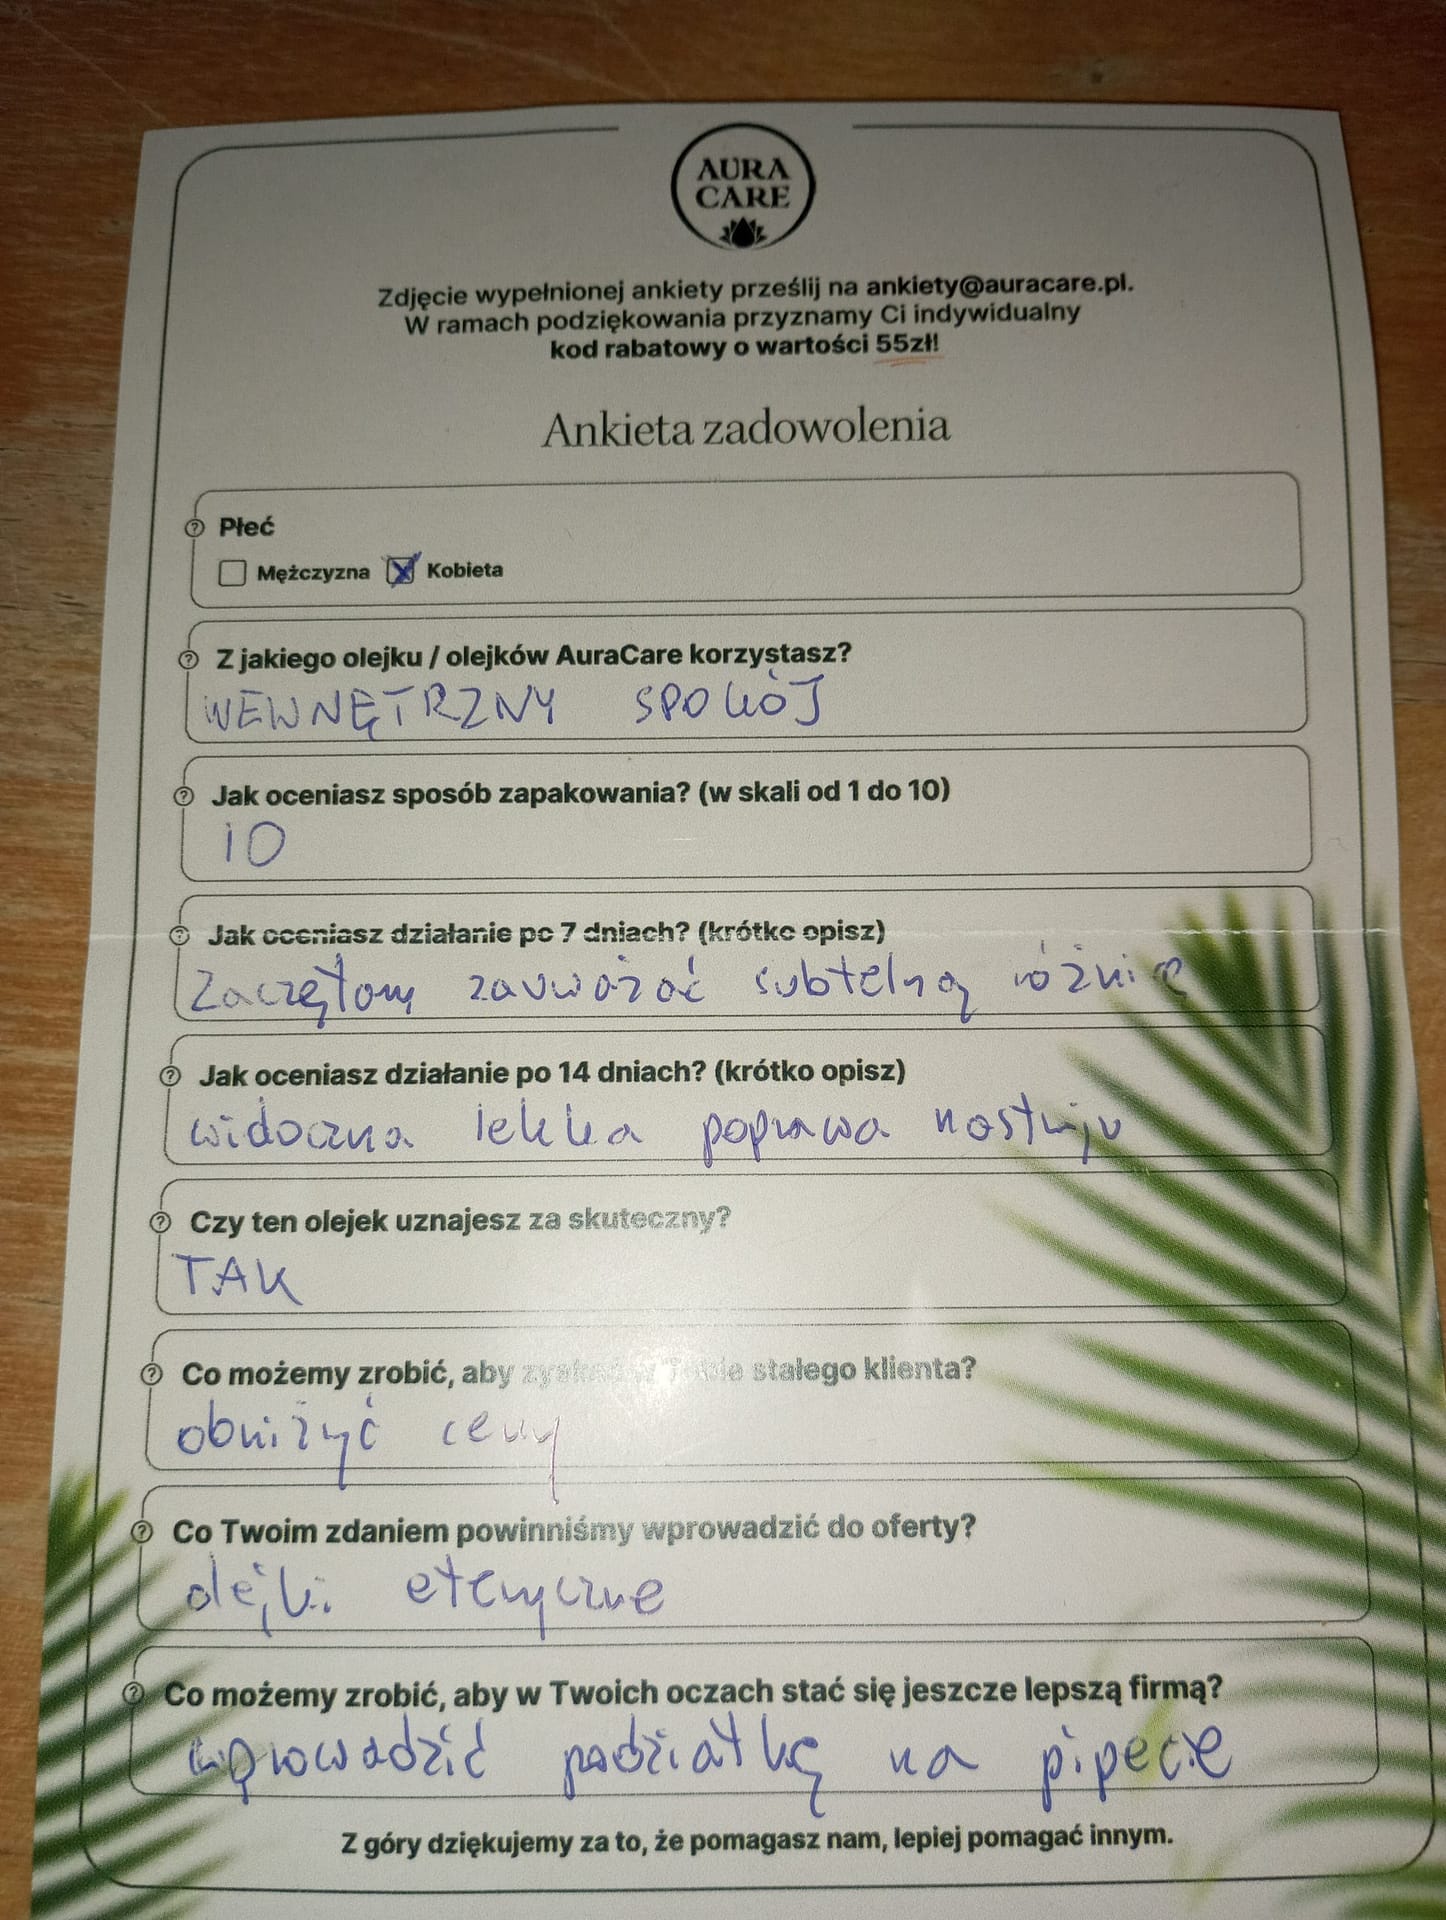 AURA
CARE
Zdjęcie wypełnionej ankiety prześlij na ankiety@auracare.pl.
W ramach podziękowania przyznamy Ci indywidualny
kod rabatowy o wartości 55zł!
Ankieta zadowolenia
Płeć
Mężczyzna Kobieta
Z jakiego olejku / olejków AuraCare korzystasz?
WEWNĘTRZNY SPOKÓJ
Jak oceniasz sposób zapakowania? (w skali od 1 do 10)
10
Jak oceniasz działanie po 7 dniach? (krótko opisz)
Zaczęłam zauważać subtelną różnicę
Jak oceniasz działanie po 14 dniach? (krótko opisz)
widoczna lekka poprawa nastroju
Czy ten olejek uznajesz za skuteczny?
TAK
Co możemy zrobić, aby zyskać w Tobie stałego klienta?
obniżyć ceny
Co Twoim zdaniem powinniśmy wprowadzić do oferty?
olejki eteryczne
Co możemy zrobić, aby w Twoich oczach stać się jeszcze lepszą firmą?
wprowadzić podziałkę na pipecie
Z góry dziękujemy za to, że pomagasz nam, lepiej pomagać innym.